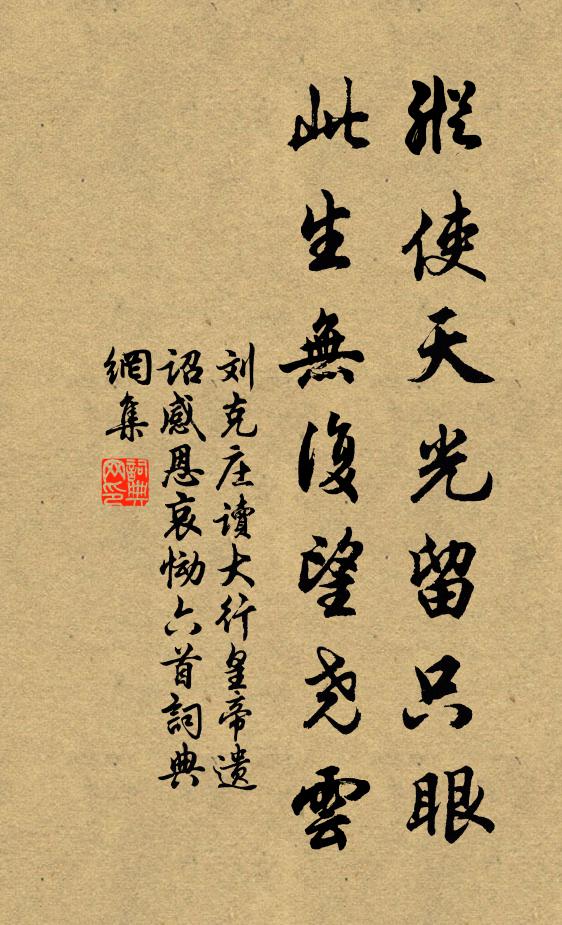 縱使天光留只眼
此生無復望尧雲
刘克庄讀大行皇帝遗
詔感恩哀恸六首詞典
網集
詞典
网印